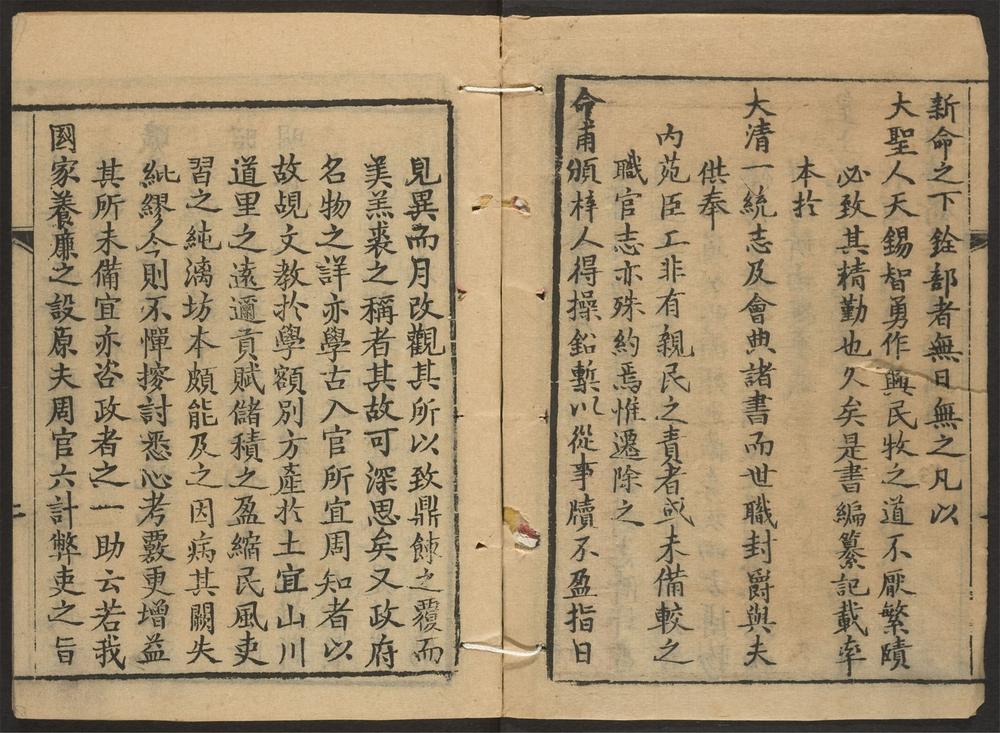 新命之下銓部者無日無之凡以
大聖人天錫智勇作興民牧之道不厭繁賾
必致其精勤也久矣是書編纂記載率
本扵
大清一統志及會典諸書而世職封爵與夫
供奉
內苑臣工非有親民之責者或未備較之
職官志亦殊約焉惟遷除之
命甫頒梓人得操鉛槧以從事牘不盈指日
見異而月改觀其所以致鼎餗之覆而
美羔裘之稱者其故可深思矣又政府
名物之詳亦學古入官所宜周知者以
故覘文教扵學額別方產扵土宜山川
道里之遠邇貢賦儲積之盈縮民風吏
習之純漓坊本頗能及之因病其闕失
紕繆今則不憚擦討悉心考覈更增益
其所未備宜亦咨政者之一助云若我
國家養廉之設原夫周官六計弊吏之旨
二